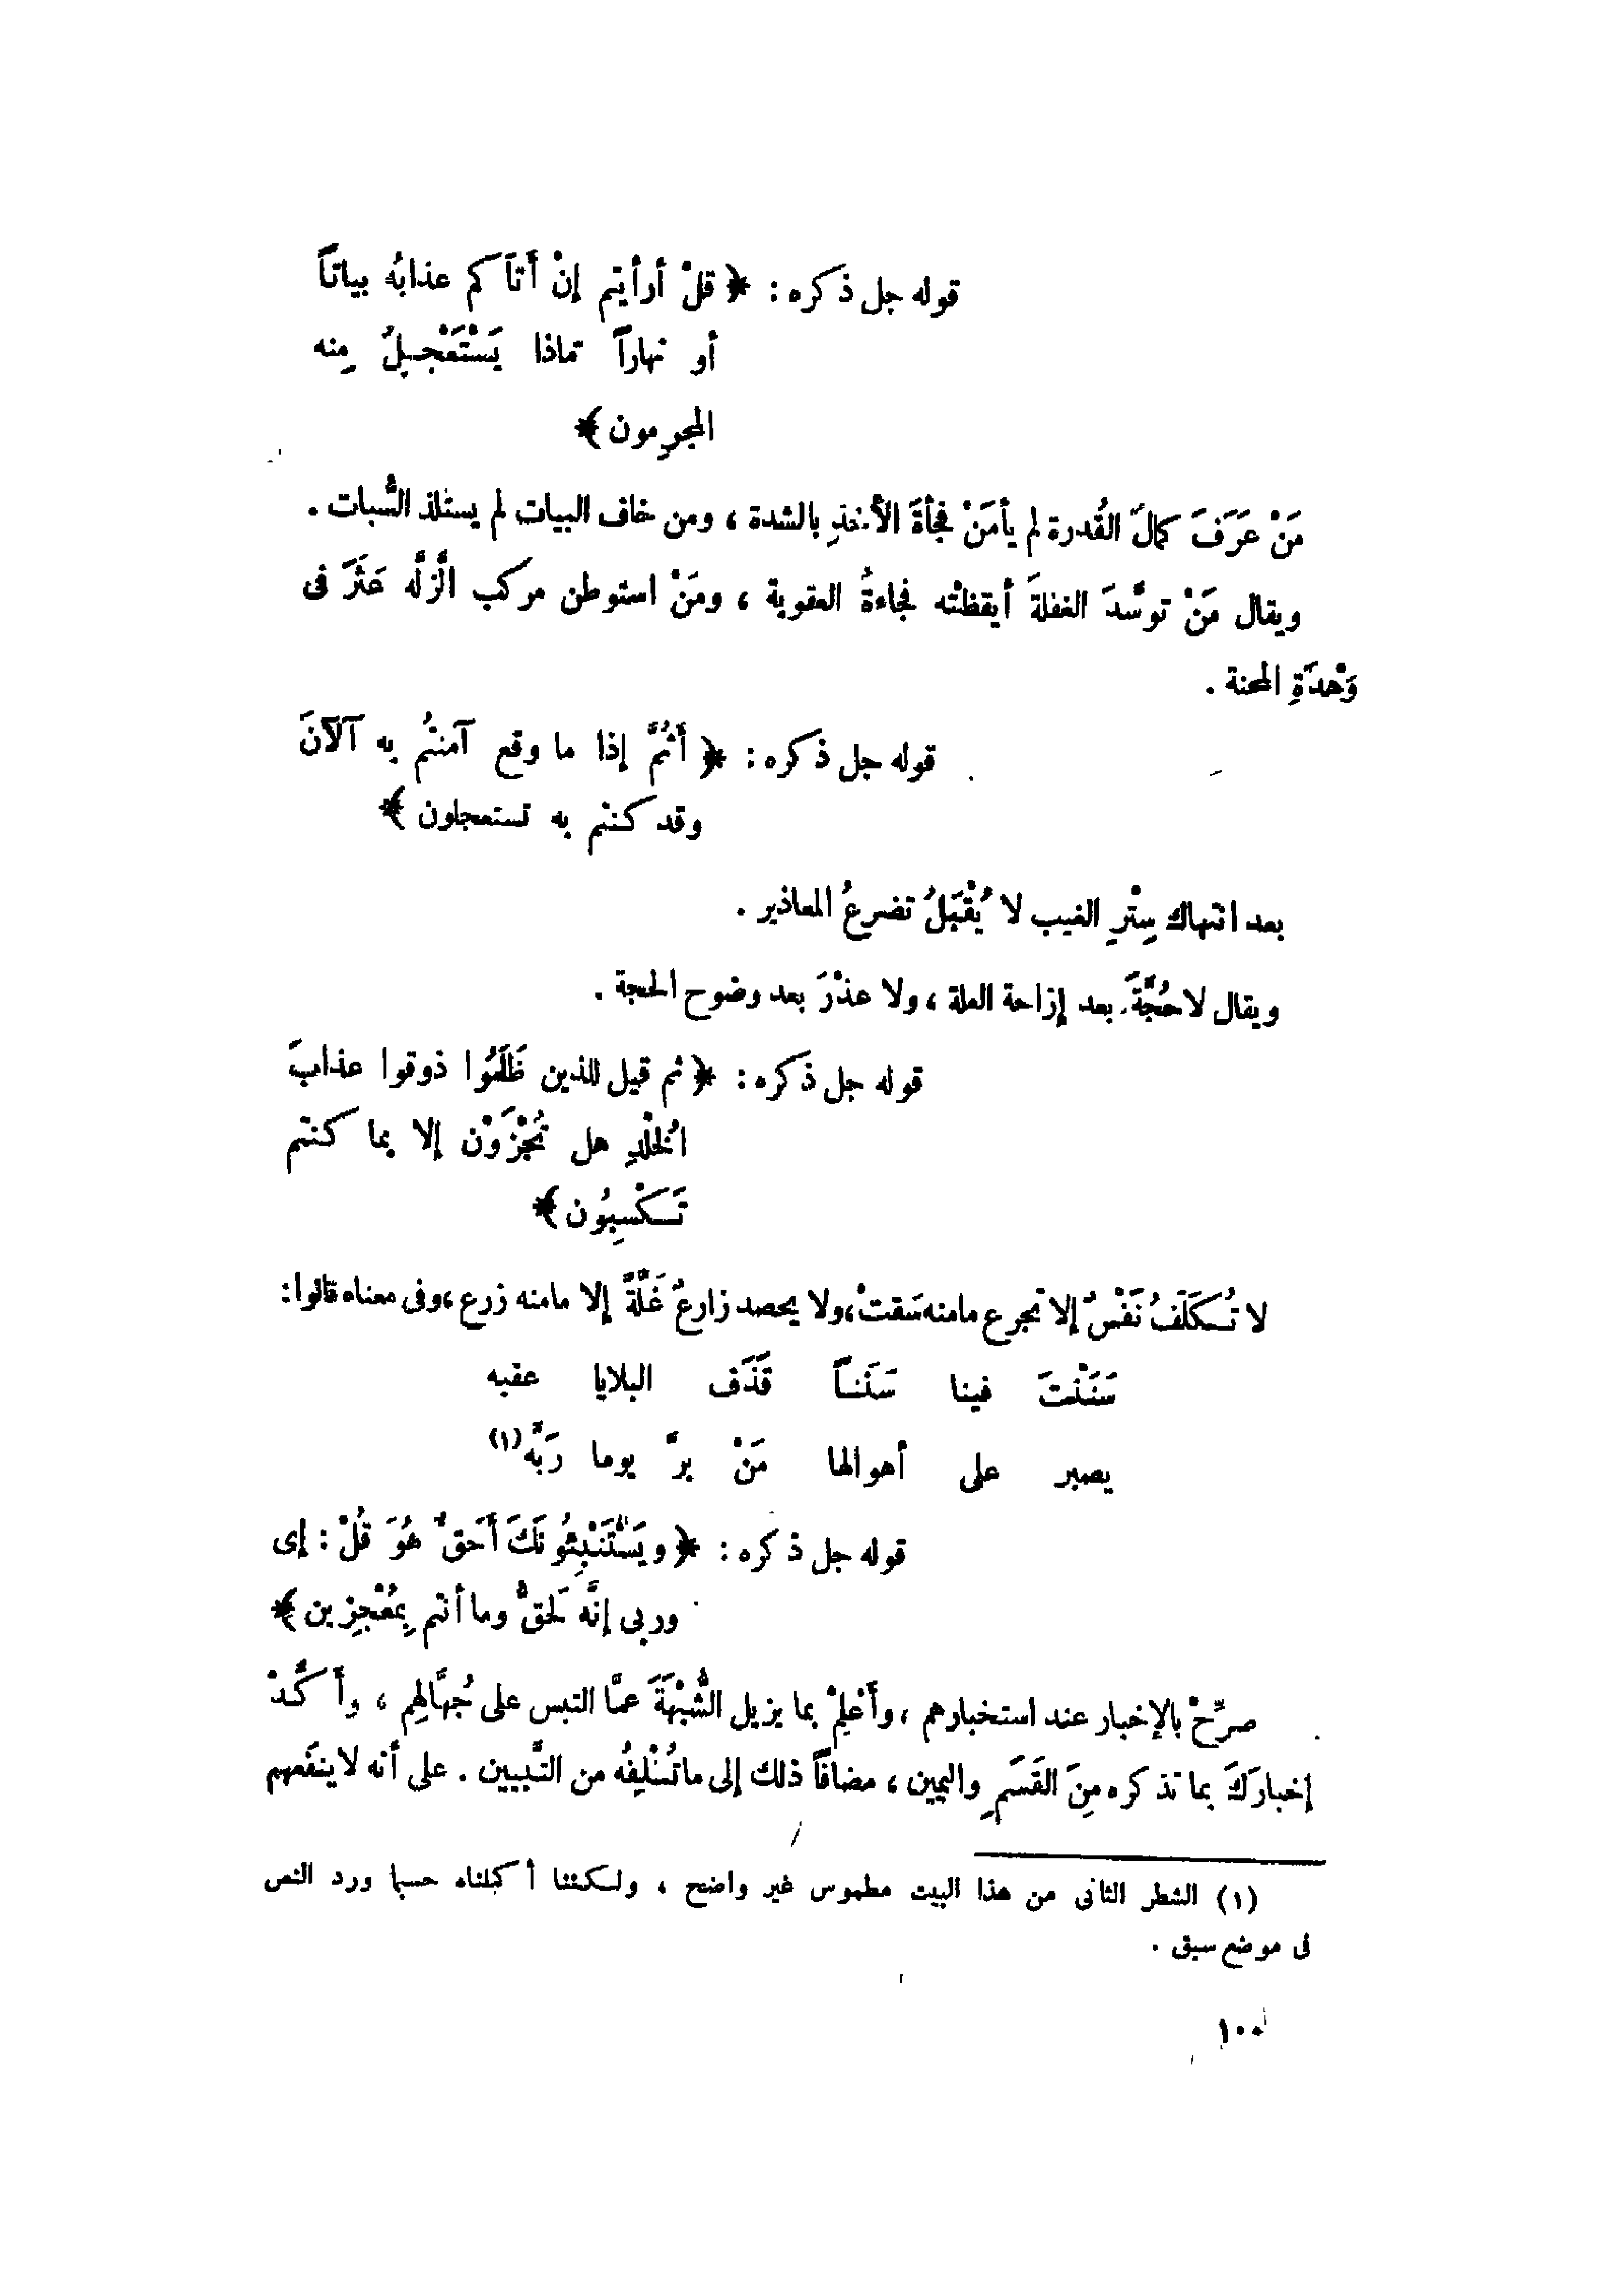 قوله جل ذكره : ﴿ قلْ أرأيتم إنْ أَتَاكم عذابُه بياتاً
أو نهاراً تماذا يَسْتَعْجِلُ مِنه
المجرِمون ﴾
مَنْ عَرَفَ كمالَ القُدرة لم يأمَنْ فجأةَ الأخذِ بالشدة ، ومن خاف البيات لم يستلذ السُّبات .
ويقال مَنْ توسَّدَ الغفلةَ أيقظتْه فجاءةُ العقوبة ، ومَنْ استوطن مركب الزلَّه عَثَرَ فى
وَهْدَةِ المحنة .
قوله جل ذكره : ﴿ أَثُمَّ إذا ما وقع آمنتُم به آلآنَ
وقد كنتم به تستعجلون ﴾
بعد انتهاك سِتْرِ الغيب لا يُقْبَلُ تضرعُ المعاذير .
ويقال لا حُجَّةَ بعد إزاحة العلة ، ولا عذْرَ بعد وضوح الحجة .
قوله جل ذكره : ﴿ ثم قيل للذين ظَلَمُوا ذوقوا عذابَ
الخُلْدِ هل تُجْزَوْن إلا بما كنتم
تَكْسِبُون ﴾
لا تُكَلَّفُ نَفْسٌ إلا تجرع مامنه سَقتْ، ولا يحصد زارعٌ غَلَّةً إلا مامنه زرع ، وفى معناه قالوا :
سَنَنْتَ فينا سَنَناً قَذَف البلايا عقبه
يصبر على أهوالها مَنْ برَّ يوما رَبَّه (١)
قوله جل ذكره : ﴿ ويَسْتَنْبِئُونَكَ أَحَقٌّ هُوَ قُلْ : إى
وربى إنَّه لَحَقٌّ وما أنتم بِمُعْجِزِين ﴾
صرِّحْ بالإخبار عند استخبارهم ، وأَعْلِمْ بما يزيل الشُّبْهَةَ عمَّا التبس على جُهَّالِهم ، وأَكِّدْ
إخبارَكَ بما تذكره مِنَ القَسَمِ واليمين ، مضافاً ذلك إلى ماتُسْلِفُه من التَّبيين . على أنه لاينفَعهم
(١) الشطر الثانى من هذا البيت مطموس غير واضح ، ولكننا أكملناه حسبما ورد النص
فى موضع سبق .
١٠٠